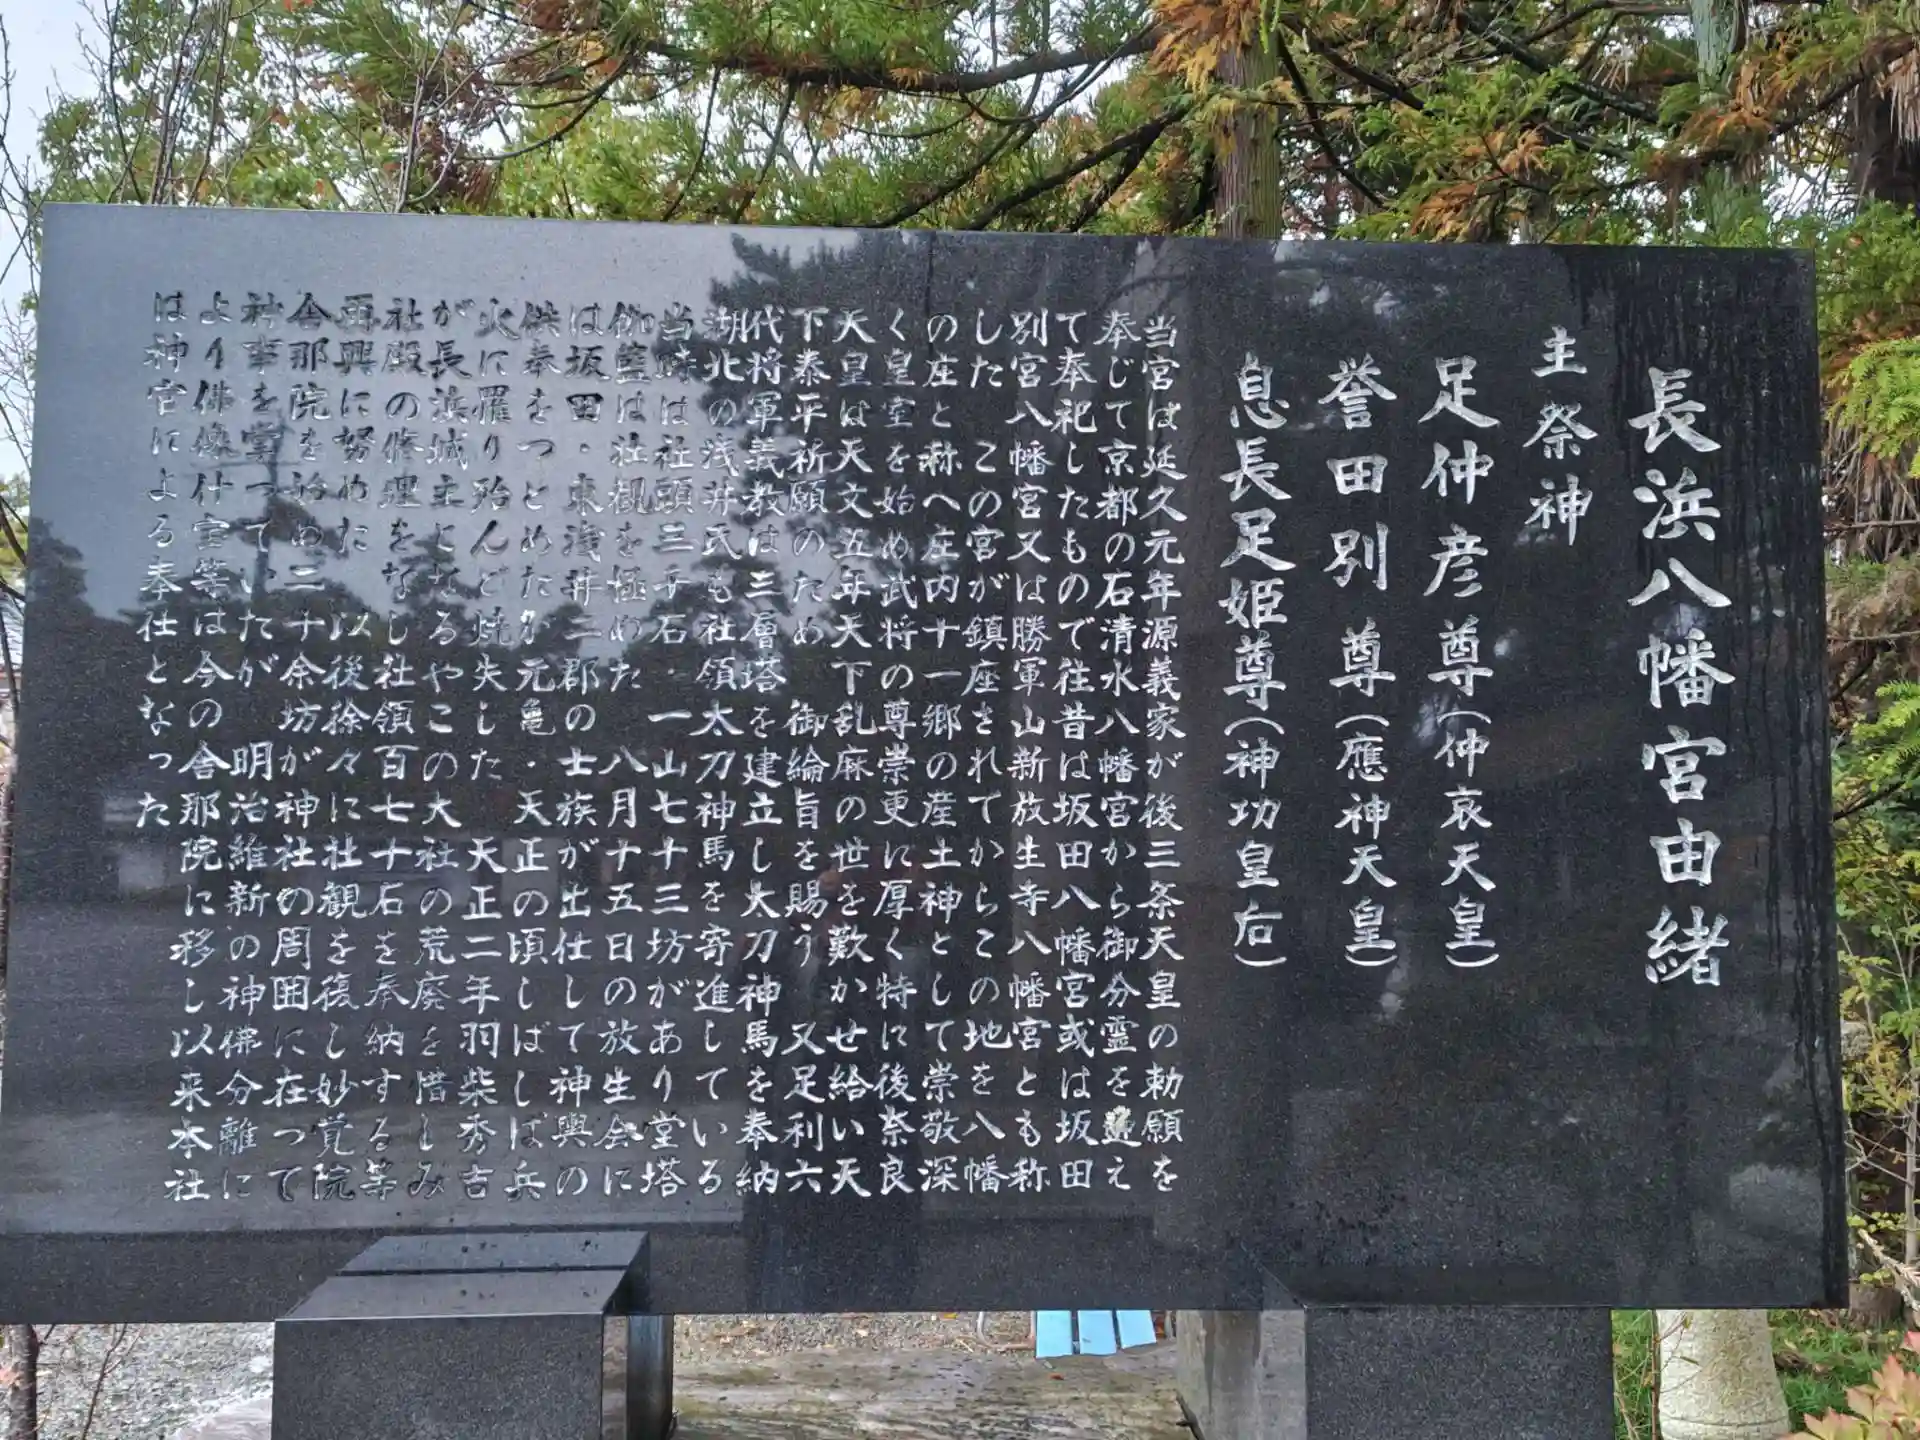 長浜八幡宮由緒
主祭神
足仲彦尊（仲哀天皇）
誉田別尊（應神天皇）
息長足姫尊（神功皇后）
当宮は延久元年源義家が後三条天皇の勅願を
奉じて京都の石清水八幡宮から御分霊を迎え
て奉祀したもので往昔は坂田八幡宮或は坂田
別宮八幡宮又は勝軍山新放生寺八幡宮とも称
した この宮が鎮座されてからこの地を八幡
の庄と称へ庄内十一郷の産土神として崇敬深
く皇室を始め武将の尊崇更に厚く特に後奈良
天皇は天文五年天下乱麻の世を歎かせ給い天
下泰平祈願のため 御綸旨を賜う 又足利六
代将軍義教は三層塔を建立し太刀神馬を奉納
湖北の浅井氏も社領太刀神馬を寄進している
当時は社頭三千石・一山七十三坊があり堂塔
伽籃は壮観を極めた 八月十五日の放生会に
は坂田・東浅井二郡の士族が出仕して神輿の
供奉をつとめたが元亀・天正の頃しばしば兵
火に罹り殆んど焼失した 天正二年羽柴秀吉
が長浜城主となるやこの大社の荒廃を惜しみ
社殿の修理をなし社領百七十石を奉納する等
再興に努めた 以後徐々に社観を復し妙覚院
舎那院を始め二十余坊が神社の周囲に在って
神事を掌っていたが 明治維新の神佛分離に
より佛像什宝等は今の舎那院に移し以来本社
は神官による奉仕となった